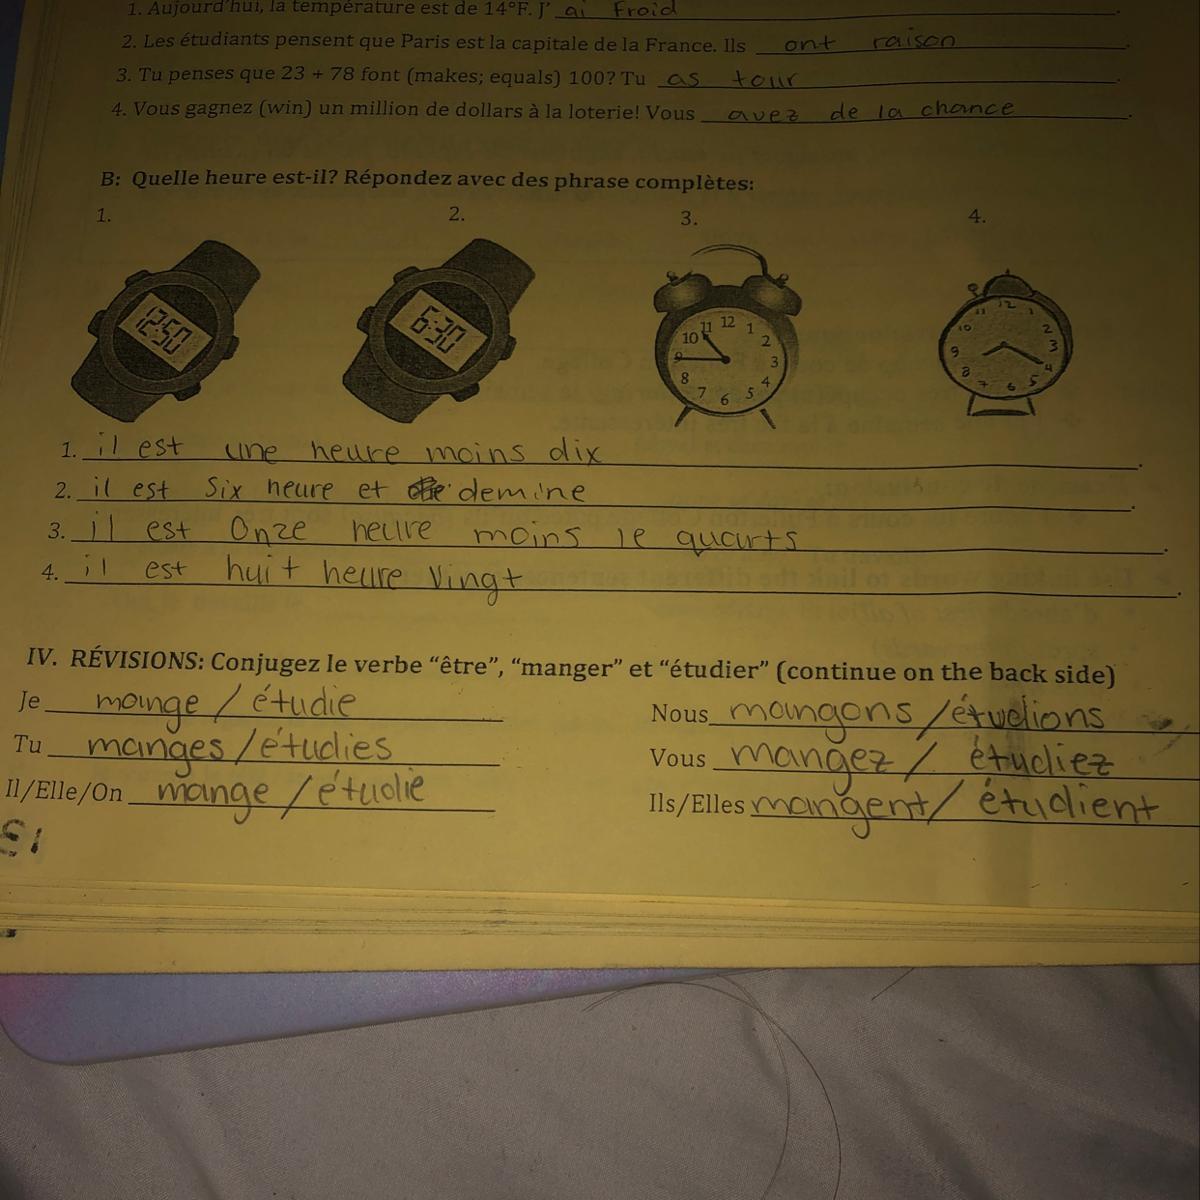 1. Aujourd'hui, la température est de 14°F. J' ai Froid.
2. Les étudiants pensent que Paris est la capitale de la France. Ils ont raison.
3. Tu penses que 23 + 78 font (makes; equals) 100? Tu as tour.
4. Vous gagnez (win) un million de dollars à la loterie! Vous avez de la chance.
B: Quelle heure est-il? Répondez avec des phrase complètes:
1. 2. 3. 4.
12:50 6:30 12 1 2 3 4 5 6 7 8 9 10 11 12 1 2 3 4 5 6 7 8 9 10 11
1. il est une heure moins dix.
2. il est Six heure et demine.
3. il est Onze heure moins le quarts.
4. il est huit heure Vingt.
IV. RÉVISIONS: Conjugez le verbe "être", "manger" et "étudier" (continue on the back side)
Je mange / étudie Nous mangons / étudions
Tu manges / étudies Vous mangez / étudiez
Il/Elle/On mange / étudie Ils/Elles mangent / étudient